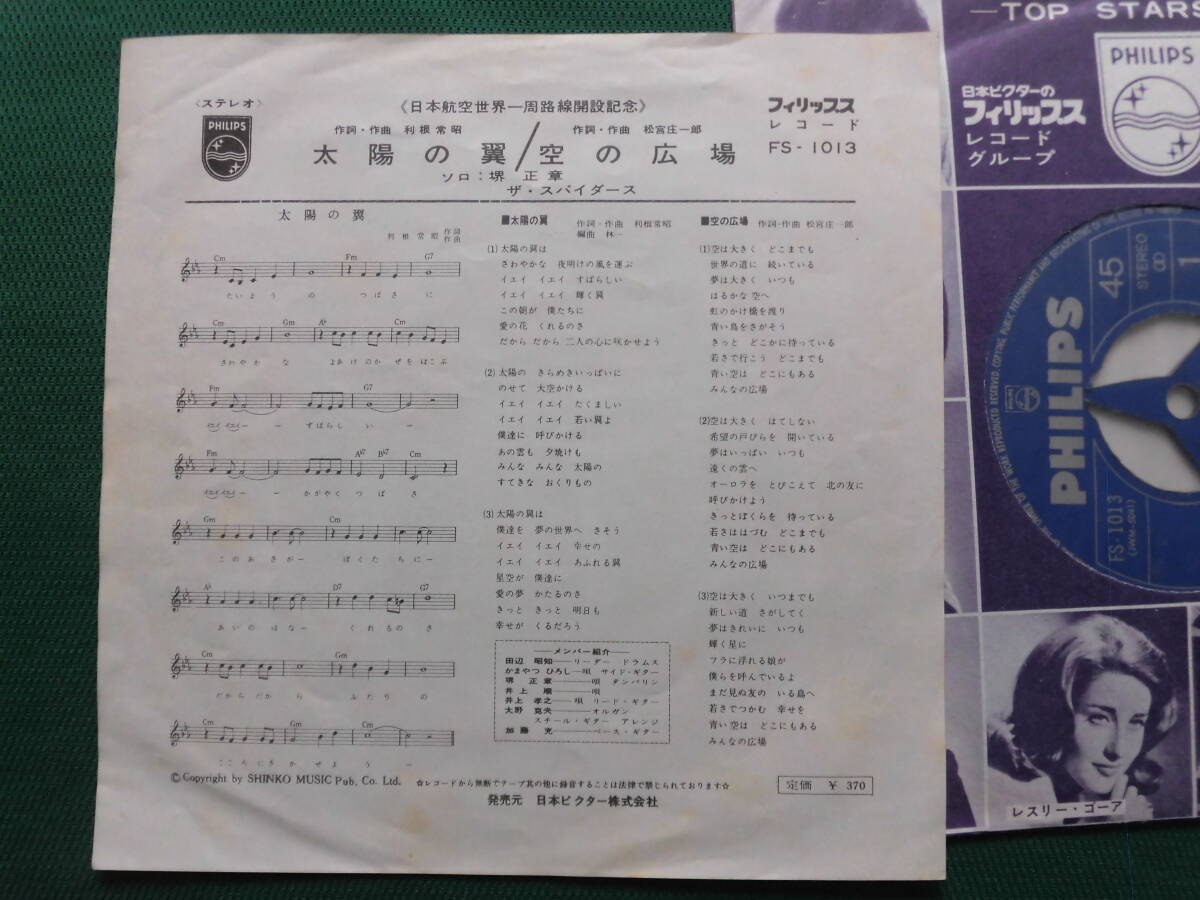 〈ステレオ〉
PHILIPS
《日本航空世界一周路線開設記念》
作詞・作曲 利根常昭
作詞・作曲 松宮庄一郎
太陽の翼/空の広場
ソロ:堺 正章
ザ・スパイダース
フィリップス
レコード
FS-1013
太陽の翼
利根常昭 作詞作曲
Cm Fm G7
たいようの つばさに
Cm Gm A♭ Cm
さわやかな よあけのかぜをはこぶ
Fm G7
イエイ イエイー ー すばらしいー
Fm A♭7 B♭7 Cm
イエイ イエイー ー かがやく つばさ
Gm Cm
このあさがー ぼくたちにー
A♭ D7 G7
あいのはなー くれるのさ
Cm Gm
だからだから ふたりの
Cm Gm Cm
こころにさかせようー
■太陽の翼
作詞・作曲 利根常昭
編曲 林一
(1)太陽の翼は
さわやかな 夜明けの風を運ぶ
イエイ イエイ すばらしい
イエイ イエイ 輝く翼
この朝が 僕たちに
愛の花 くれるのさ
だから だから 二人の心に咲かせよう
(2)太陽の きらめきいっぱいに
のせて 大空かける
イエイ イエイ たくましい
イエイ イエイ 若い翼よ
僕達に 呼びかける
あの雲も 夕焼けも
みんな みんな 太陽の
すてきな おくりもの
(3)太陽の翼は
僕達を 夢の世界へ さそう
イエイ イエイ 幸せの
イエイ イエイ あふれる翼
星空が 僕達に
愛の夢 かたるのさ
きっと きっと 明日も
幸せが くるだろう
―メンバー紹介―
田辺 昭知―リーダー ドラムス
かまやつ ひろし―唄 サイド・ギター
堺 正章―唄 タンバリン
井上 順―唄
井上 孝之―唄 リード・ギター
大野 克夫―オルガン
スチール・ギター アレンジ
加藤 充―ベース・ギター
■空の広場 作詞・作曲 松宮庄一郎
(1)空は大きく どこまでも
世界の道に 続いている
夢は大きく いつも
はるかな 空へ
虹のかけ橋を渡り
青い鳥をさがそう
きっと どこかに待っている
若さで行こう どこまでも
青い空は どこにもある
みんなの広場
(2)空は大きく はてしない
希望の戸びらを 開いている
夢はいっぱい いつも
遠くの雲へ
オーロラを とびこえて 北の友に
呼びかけよう
きっとぼくらを 待っている
若さははずむ どこまでも
青い空は どこにもある
みんなの広場
(3)空は大きく いつまでも
新しい道 さがしてく
夢はきれいに いつも
輝く星に
フラに浮れる娘が
僕らを呼んでいるよ
まだ見ぬ友の いる島へ
若さでつかむ 幸せを
青い空は どこにもある
みんなの広場
©Copyright by SHINKO MUSIC Pub, Co. Ltd.
☆レコードから無断でテープ其の他に録音することは法律で禁じられております☆
定価 ¥ 370
発売元 日本ビクター株式会社
—TOP STARS
PHILIPS
日本ビクターの
フィリップス
レコード
グループ
45
STEREO
1
PHILIPS
FS-1013
レスリー・ゴーア